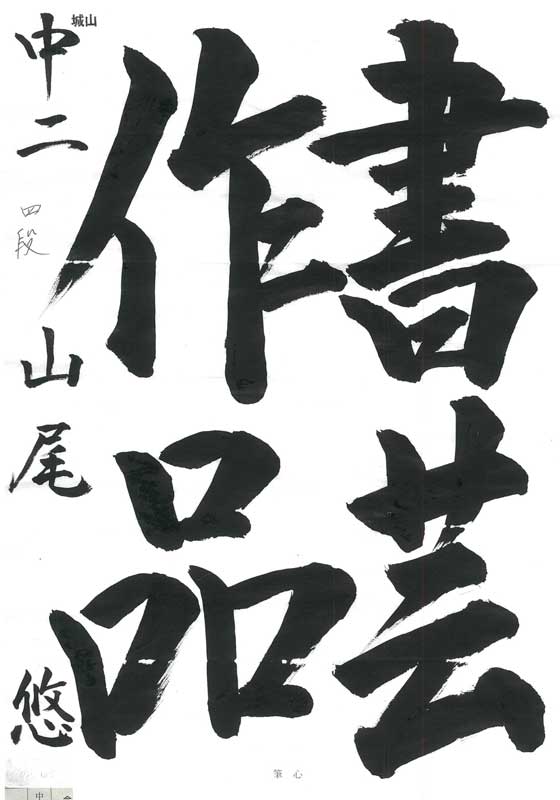 書芸
作品
城山
中二 四段 山尾 悠
筆心
中